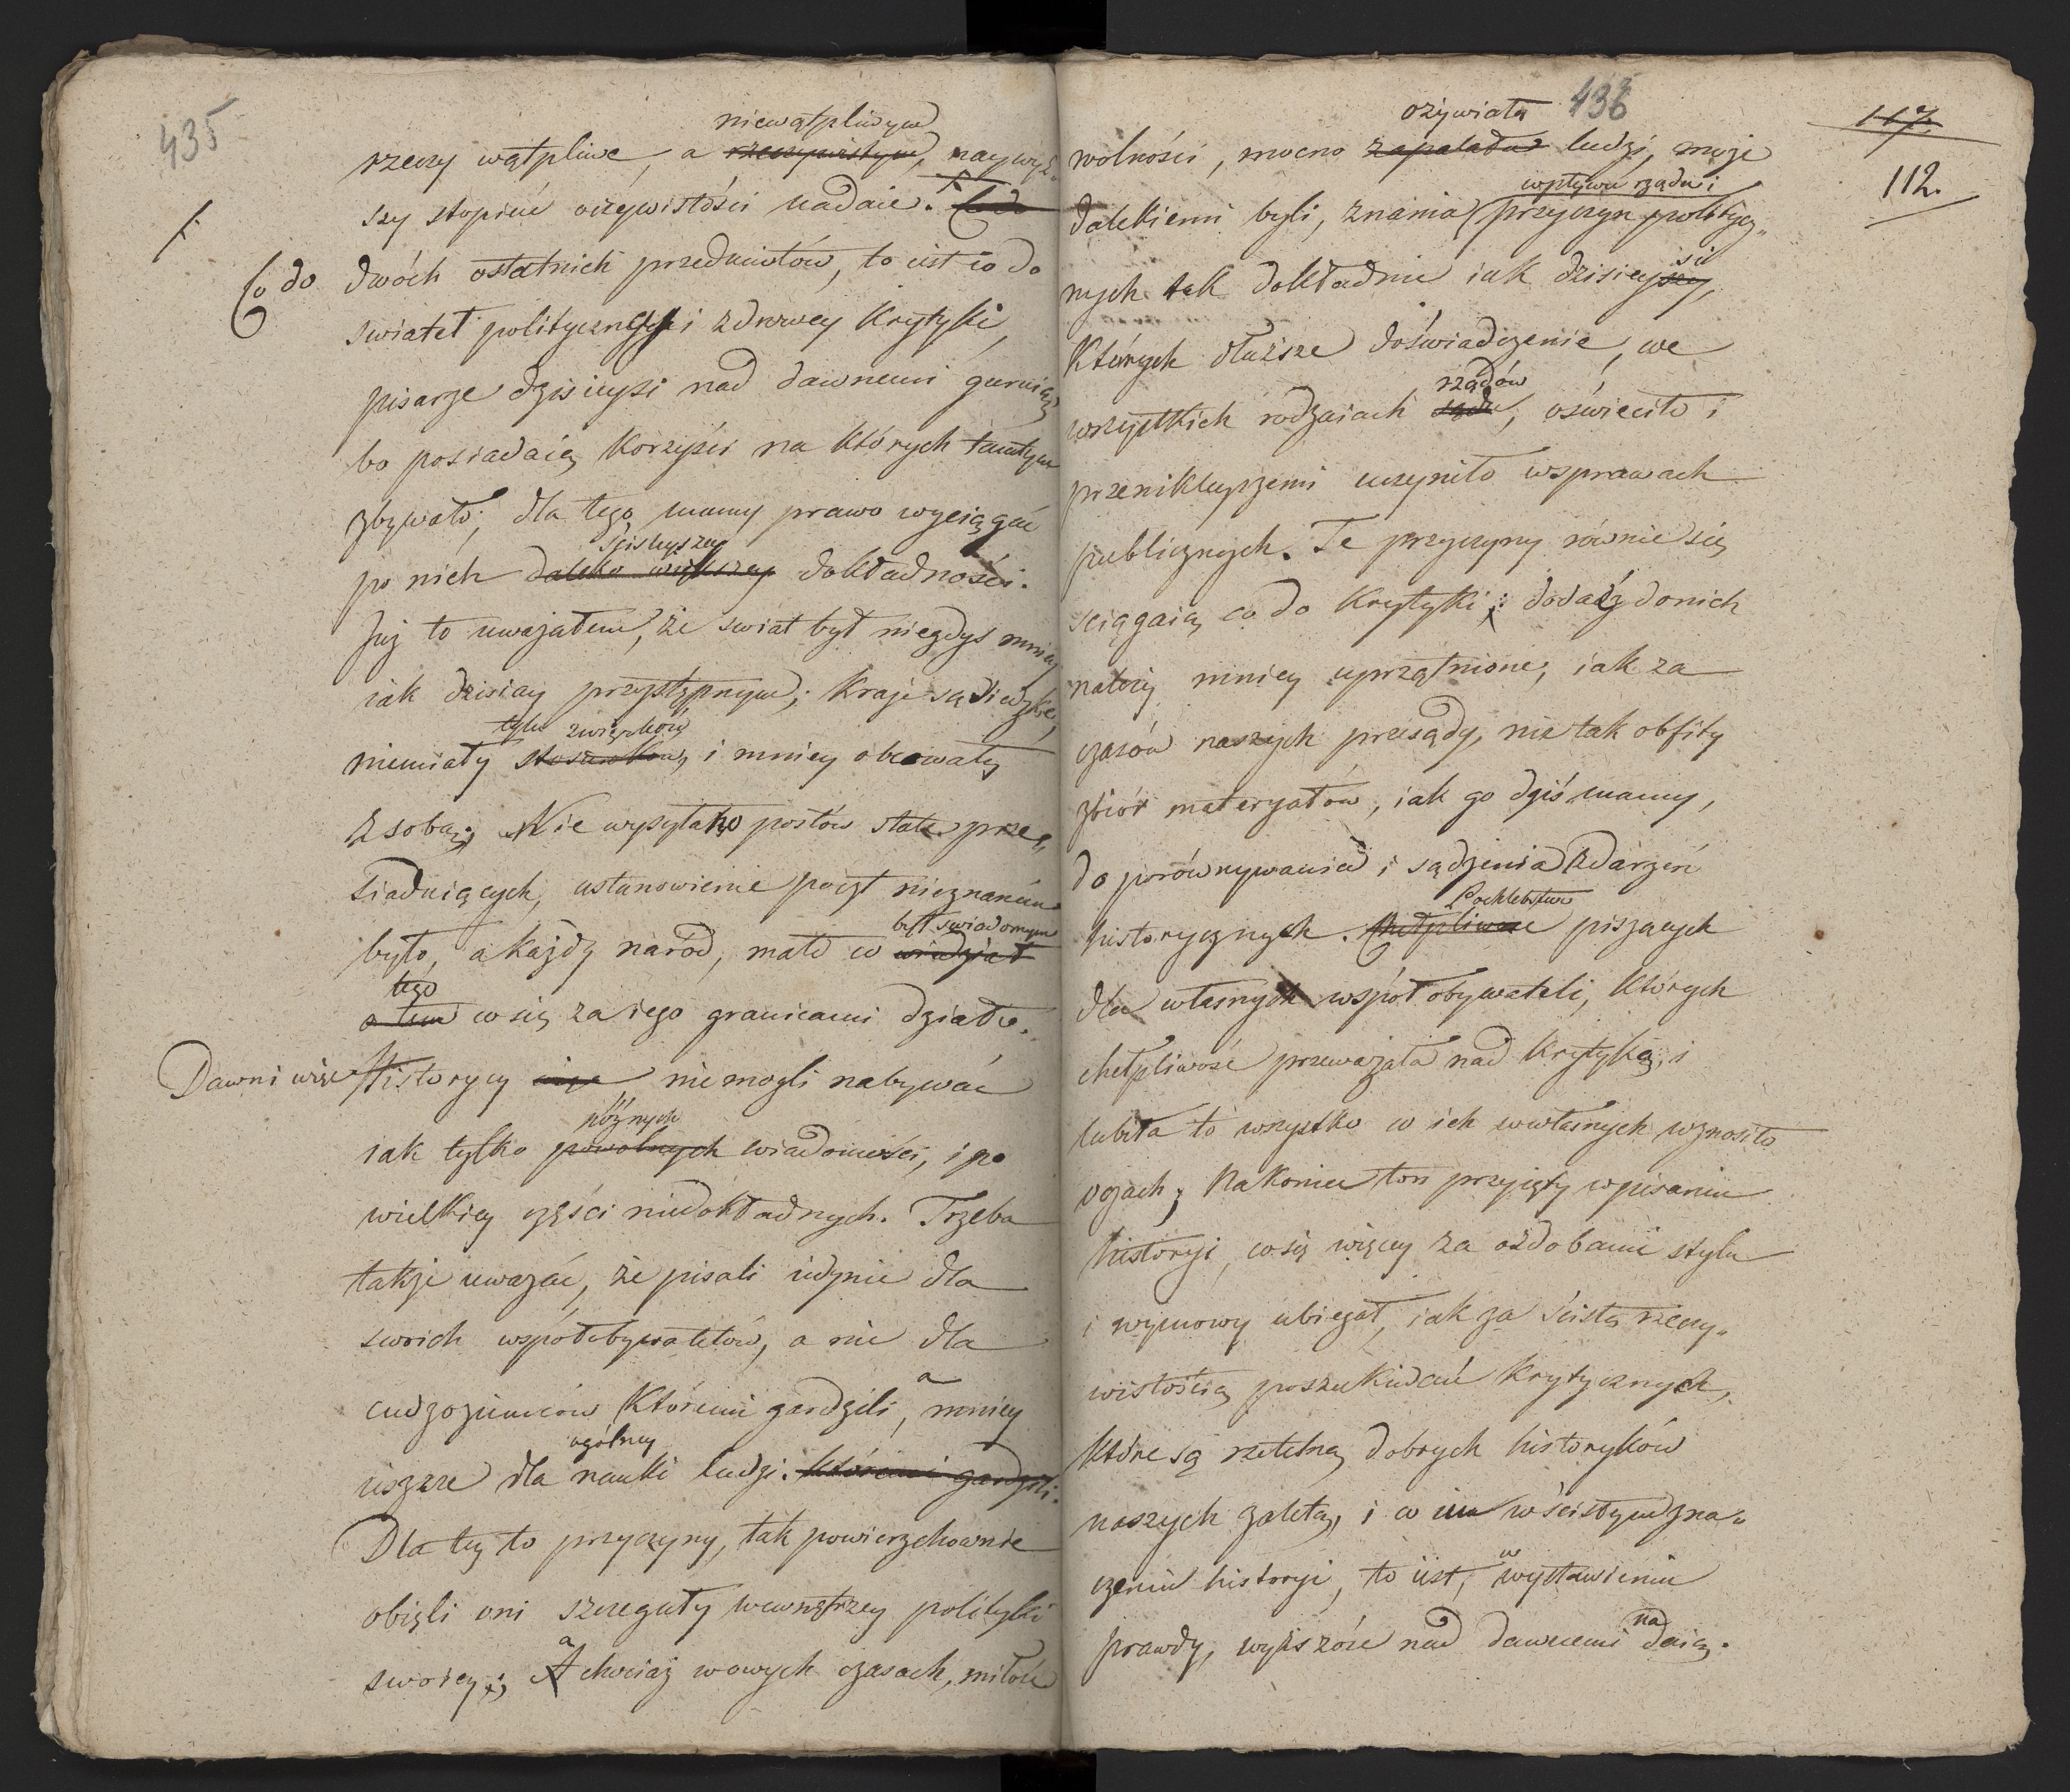 435
niewątpliwym
rzeczy wątpliwe, a rzeczywistym, naywyż„
szy stopień oczywistości nadaie. Co do
Co do dwóch ostatnich przedmiotów, to iest co do
swiateł politycznych i zdrowey Krytyki,
pisarze dzisieysi nad dawnemi góruią,
bo posiadaią Korzyści na których tamtym
zbywało; dla tego mamy prawo wyciągać
scisleyszey
po nich daleko większey dokładności.
Już to uważałem, że swiat był niegdys mniey
iak dzisiay przystępnym; Kraje sąsiedzkie,
tylu związków
niemiały stosunków, i mniey obcowały
z sobą; Nie wysyłano posłów stale prze„
siaduiących, ustanowienie poczt nieznaném
był swiadomym
było, a każdy naród, mało co widział
tego
o tem co się za iego granicami działo.
Dawni więc Historycy więc nie mogli nabywać
późnych
iak tylko powolnych wiadomości, i po
wielkiey części niedokładnych. Trzeba
także uważać, że pisali iedynie dla
swoich współobywatelów, a nie dla
a
cudzoziemców Któremi gardzili, mniey
ogólney
ieszcze dla nauki ludzi. któremi gardzili.
Dla tey to przyczyny, tak powierzchownie
obięli oni szczeguły wewnętrzey polityki
a
swoiey; A chociaż w owych czasach, miłość
436
117.
112.
ożywiała
wolności, mocno zapalała ludzi, może
wpływu rządu i
dalekiemi byli, znania przyczyn politycz„
si
nych tak dokładnie iak dzisieyszy,
Których dłuższe doświadczenie, we
rządów
wszystkich rodzaiach sądu, oświeciło i
przenikleyszemi uczyniło w sprawach
publicznych. Te przyczyny równie się
sciągaią co do Krytyki; dodać do nich
należy mniey uprzątnione, iak za
czasów naszych przesądy, nie tak obfity
zbiór materyałów, iak go dziś mamy,
do porównywania i sądzenia zdarzeń
Pochlebstwo
historycznych. Chełpliwość piszących
dla własnych współobywateli, których
chełpliwość przeważała nad Krytyką, i
lubiła to wszystko co ich w własnych wznosiło
oczach; Nakoniec ton przyięty w pisaniu
historyi, co się więcey za ozdobami stylu
i wymowy ubiegał, iak za ścisłą rzeczy„
wistością poszukiwań Krytycznych,
które są rzetelną dobrych historyków
naszych zaletą, i co im w ścisłym zna„
w
czeniu historyi, to iest, wystawieniu
na
prawdy, wyższość nad dawnemi daią.